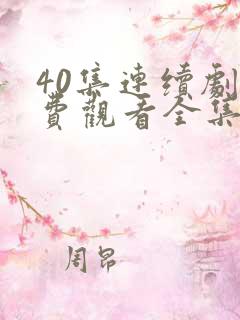 40集連續劇
費觀看全集
周昂